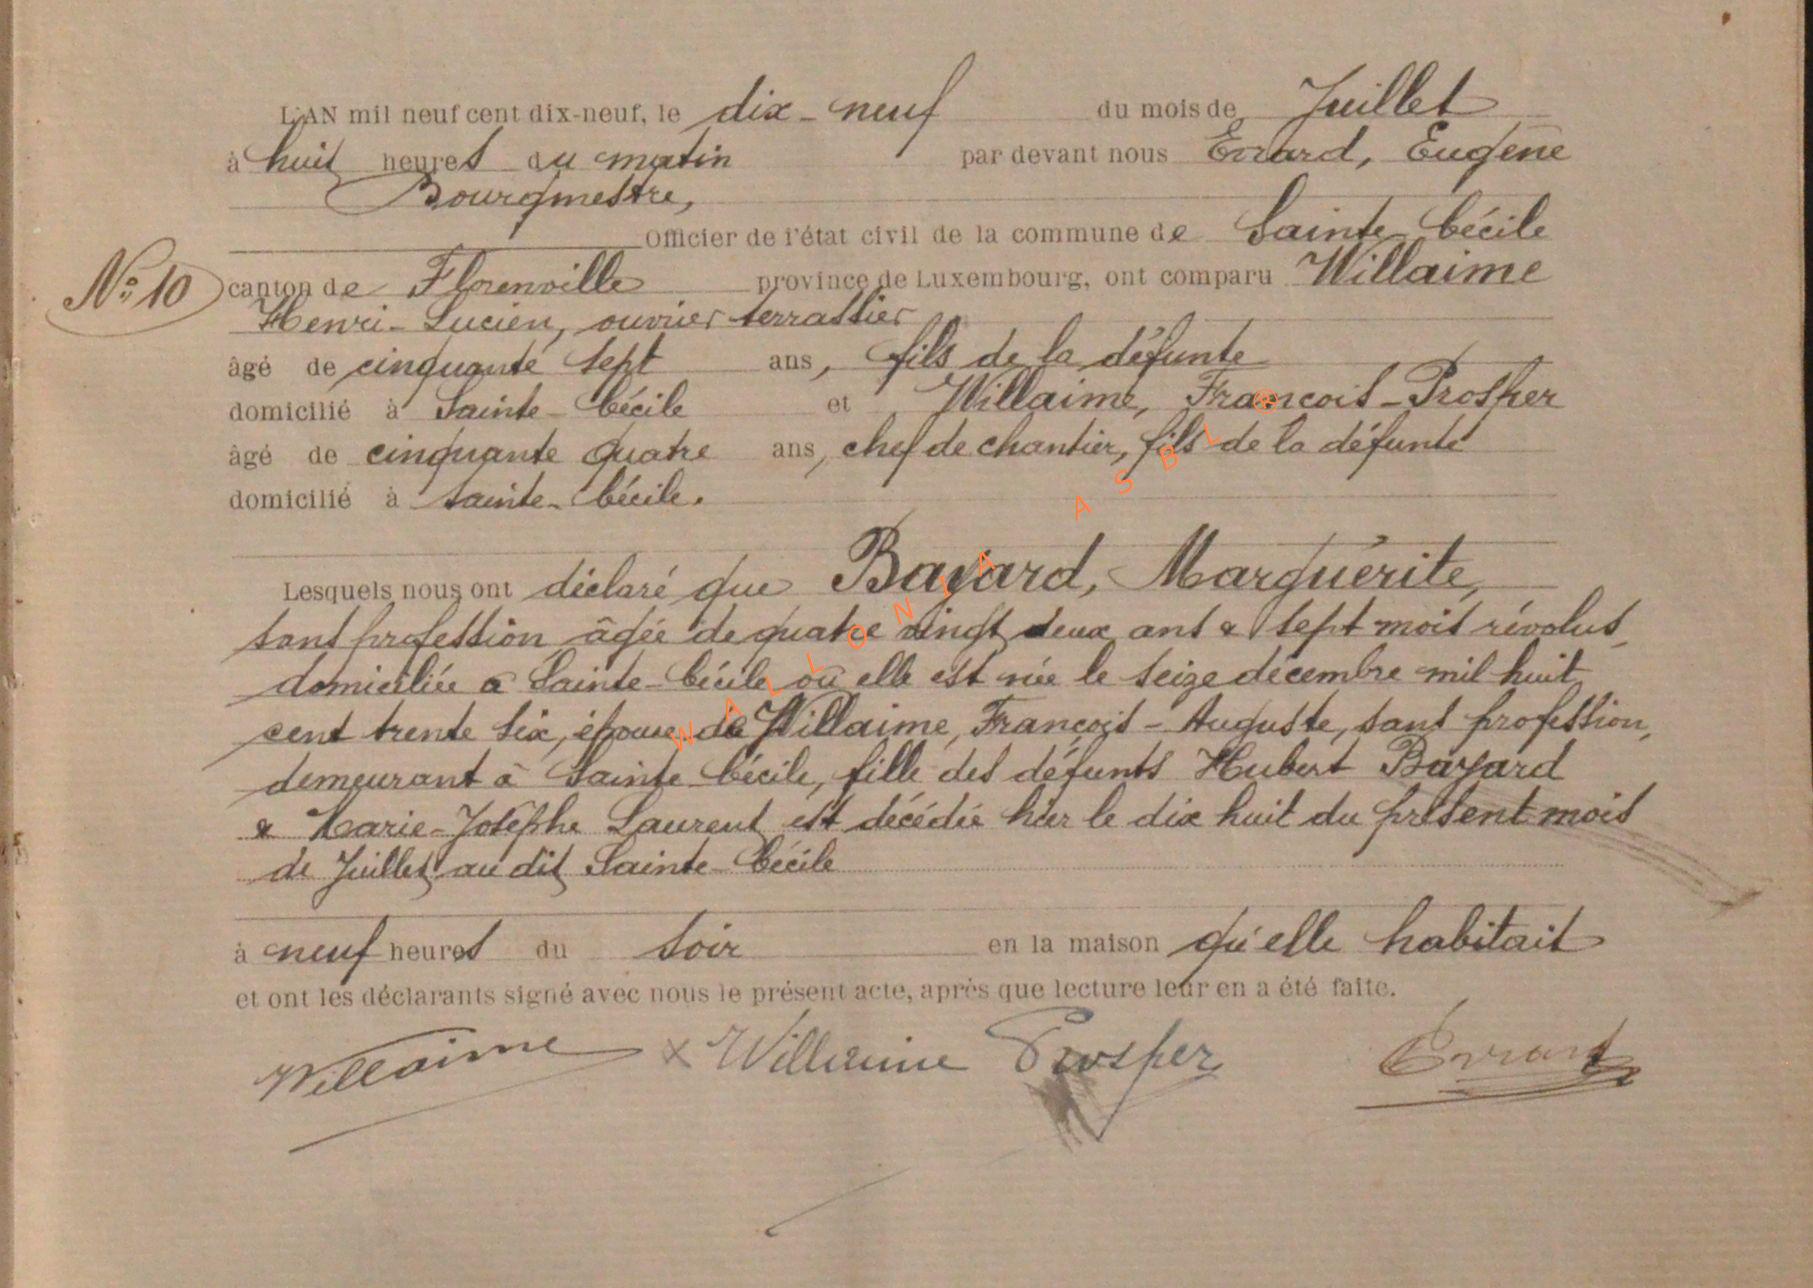 L'AN mil neuf cent dix-neuf, le dix-neuf du mois de Juillet
à huit heures du matin par devant nous Evrard, Eugène
Bourgmestre,
Officier de l'état civil de la commune de Sainte Cécile
N° 10 canton de Florenville province de Luxembourg, ont comparu Willaime
Henri-Lucien, ouvrier terrassier
âgé de cinquante sept ans, fils de la défunte
domicilié à Sainte-Cécile et Willaime, François-Prosper
âgé de cinquante quatre ans, chef de chantier, fils de la défunte
domicilié à Sainte-Cécile.
Lesquels nous ont déclaré que Bayard, Marguerite,
sans profession âgée de quatre vingt deux ans & sept mois révolus,
domiciliée à Sainte-Cécile où elle est née le seize décembre mil huit
cent trente six, épouse de Willaime, François-Auguste, sans profession,
demeurant à Sainte Cécile, fille des défunts Hubert Bayard
& Marie-Josèphe Laurent est décédée hier le dix huit du présent mois
de Juillet au dit Sainte-Cécile
à neuf heures du soir en la maison qu'elle habitait
et ont les déclarants signé avec nous le présent acte, après que lecture leur en a été faite.
Willaime x Willaime Prosper Evrard
WALLONIA ASBL ®